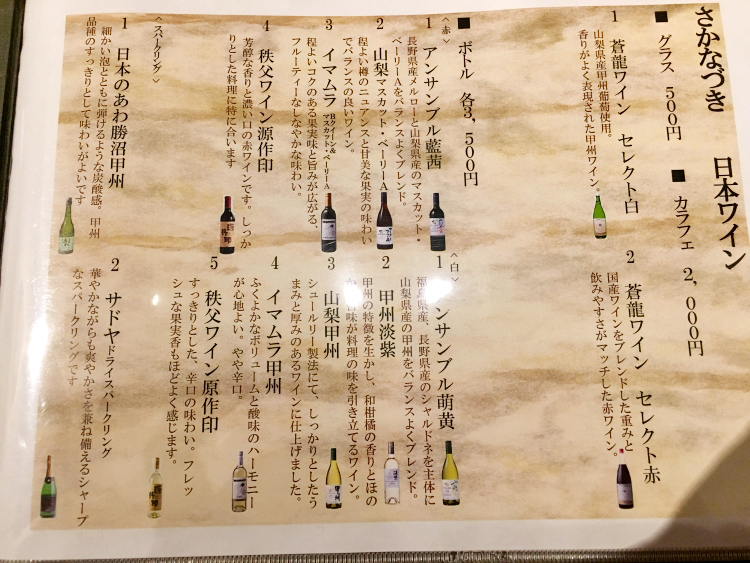 さかなづき 日本ワイン
■ グラス 500円 ■ カラフェ 2,000円
1 蒼龍ワイン セレクト白
山梨県産甲州葡萄使用。
香りがよく表現された甲州ワイン。
2 蒼龍ワイン セレクト赤
国産ワインをブレンドした重みと
飲みやすさがマッチした赤ワイン。
■ ボトル 各3,500円
〈赤〉
1 アンサンブル藍茜
長野県産メルローと山梨県産のマスカット・
ベーリーAをバランスよくブレンド。
2 山梨マスカット・ベーリーA
程よい樽のニュアンスと甘美な果実の味わい
でバランスの良いワイン。
3 イマムラ Bクイーン&マスカット・ベーリーA
程よいコクのある果実味と旨みが広がる、
フルーティーなしなやかな味わい。
4 秩父ワイン源作印
芳醇な香りと濃い口の赤ワインです。しっか
りとした料理に特に合います
〈白〉
1 アンサンブル萌黄
福島県産、長野県産のシャルドネを主体に
山梨県産の甲州をバランスよくブレンド。
2 甲州淡紫
甲州の特徴を生かし、和柑橘の香りとほの
かな 味が料理の味を引き立てるワイン。
3 山梨甲州
シュールリー製法にて、しっかりとしたう
まみと厚みのあるワインに仕上げました。
4 イマムラ甲州
ふくよかなボリュームと酸味のハーモニー
が心地よい。やや辛口。
5 秩父ワイン源作印
すっきりとした、辛口の味わい。フレッ
シュな果実香もほどよく感じます。
〈スパークリング〉
1 日本のあわ勝沼甲州
細かい泡とともに弾けるような炭酸感。甲州
品種のすっきりとして味わいがよいです
2 サドヤドライスパークリング
華やかながらも爽やかさを兼ね備えるシャープ
なスパークリングです